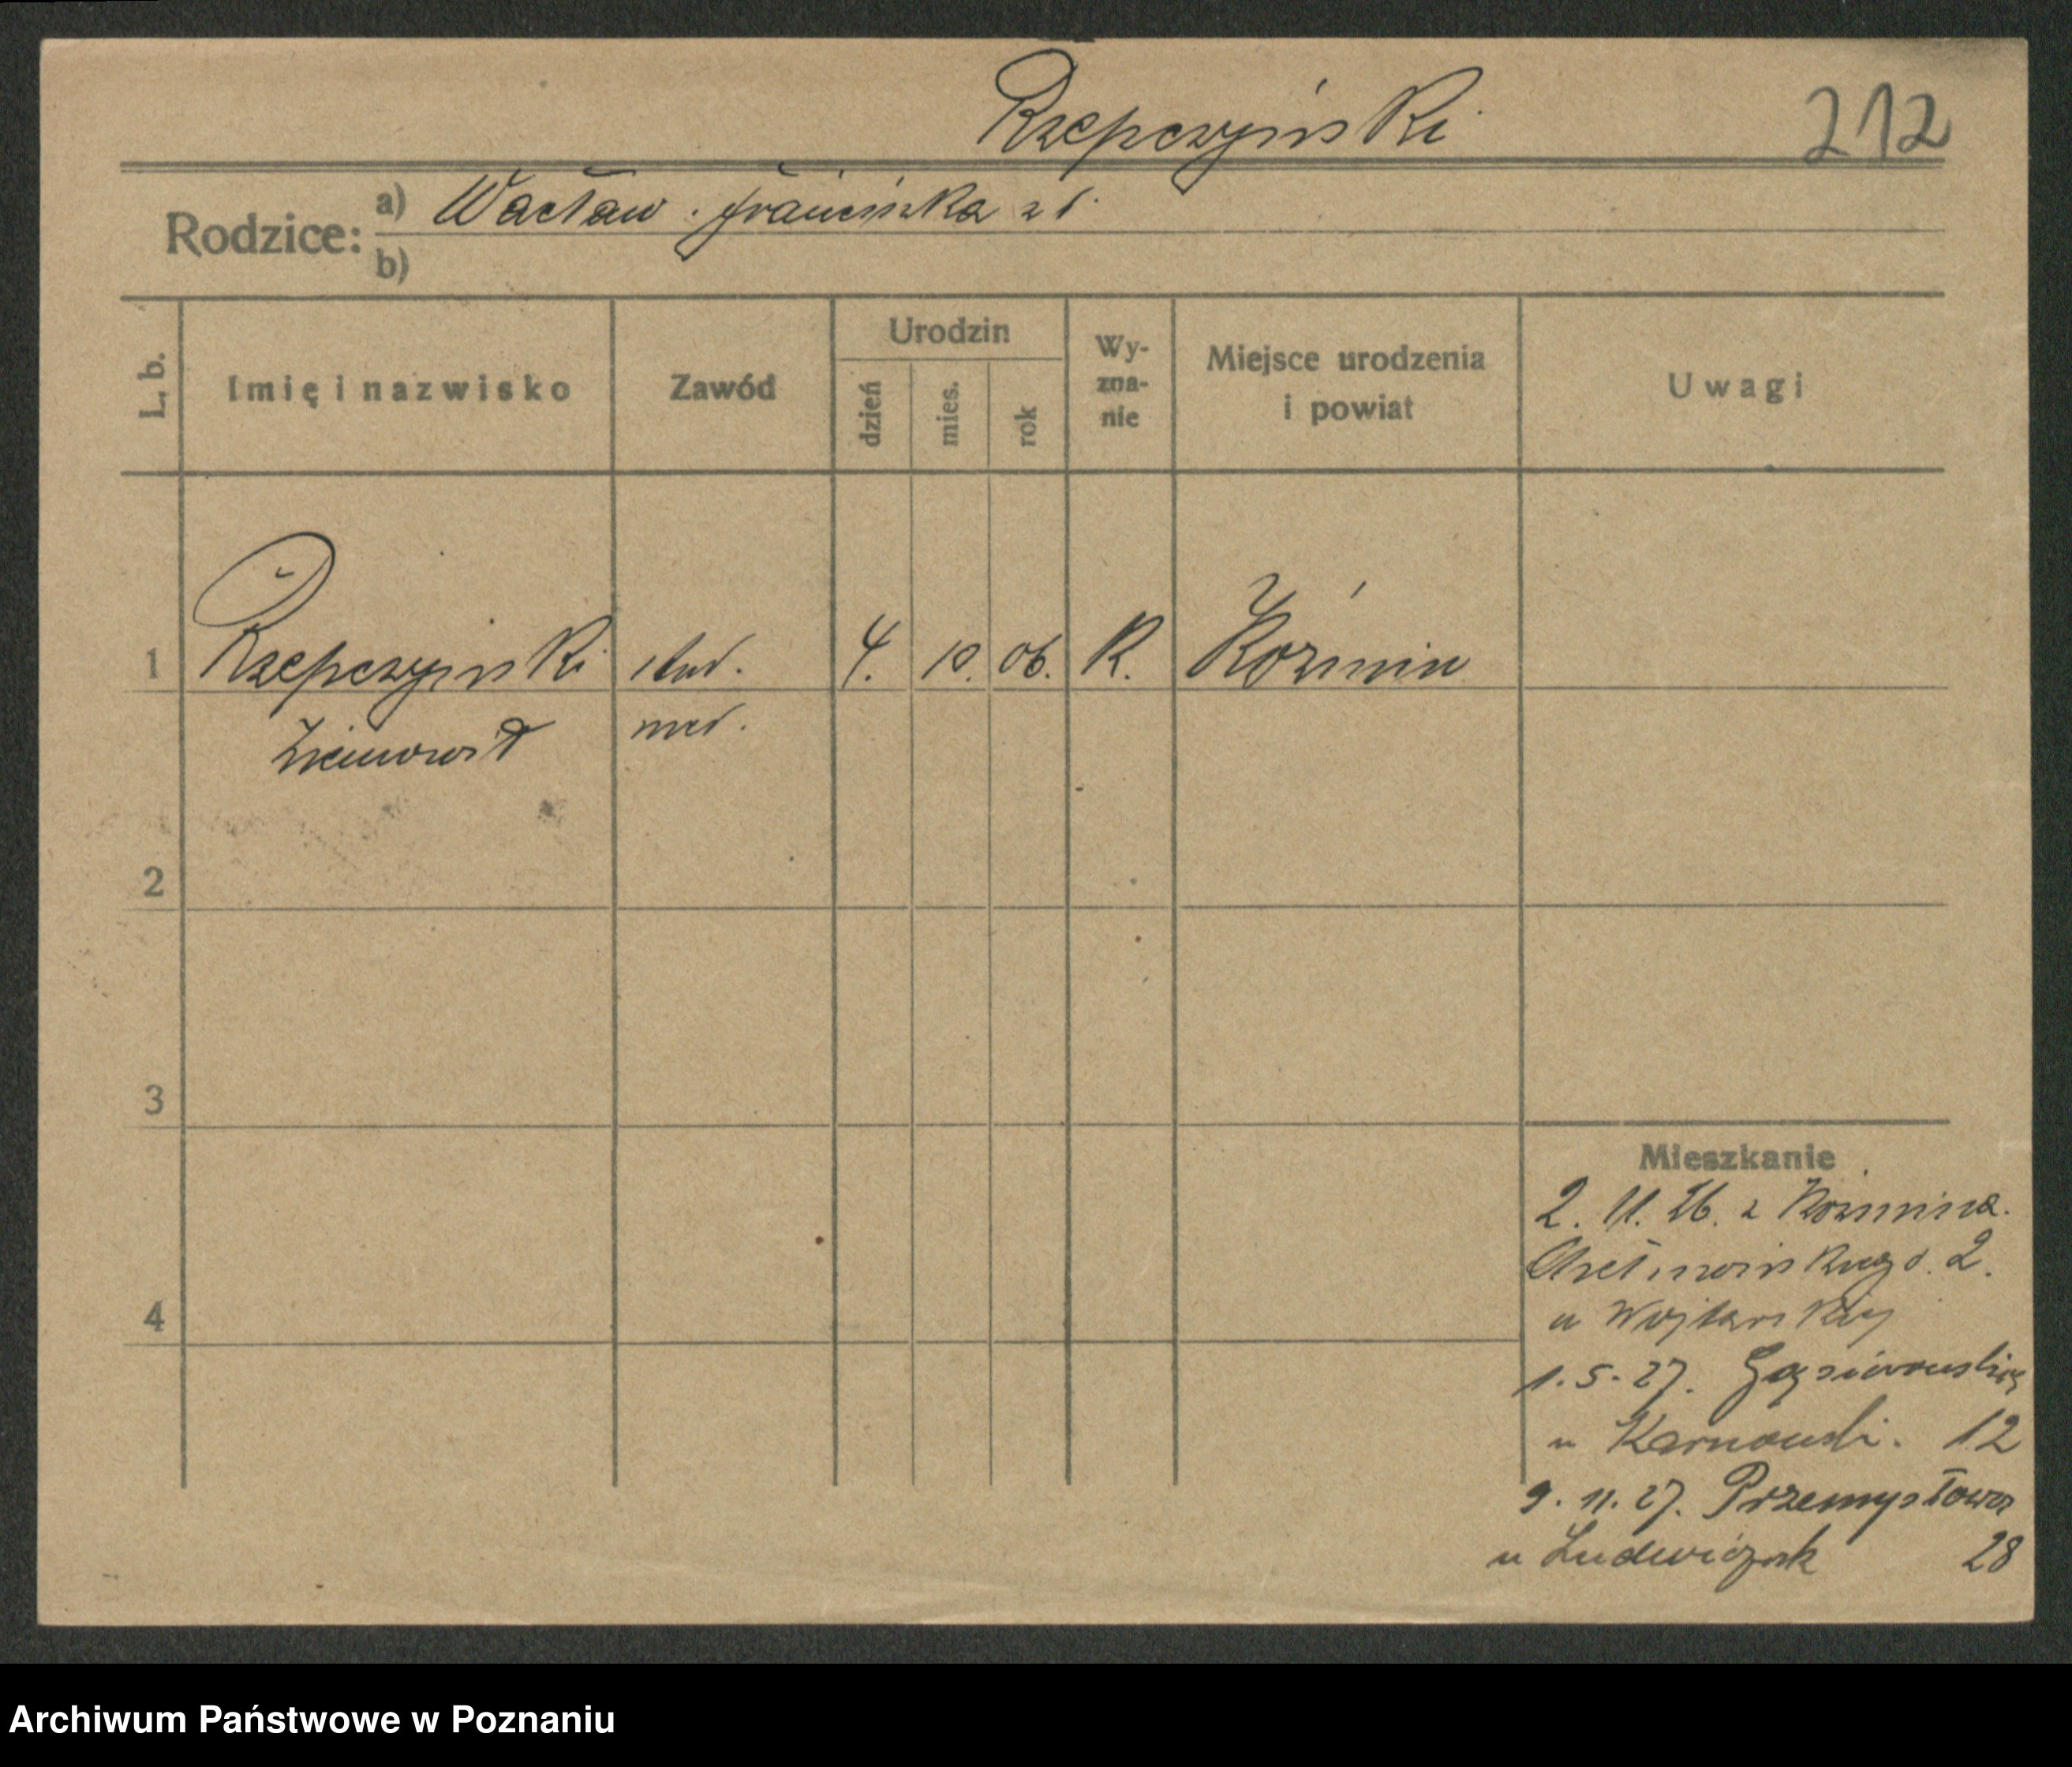 Rzepczyński 212
Rodzice: a) Wacław. Franciszka z d.
b)
L. b. Imię i nazwisko Zawód Urodzin dzień mies. rok Wy-zna-nie Miejsce urodzenia i powiat Uwagi
1 Rzepczyński stud. 4. 10. 06. K. Koźmin
Ziemowit med.
2
3
4
Mieszkanie
2. 11. 26. z Koźmina.
Chełmońskiego. 2.
u Wojtarskiej
1. 5. 27. Gąsiorowskich
u Karnowski. 12
9. 11. 27. Przemysłowa
u Ludwiczak 28
Archiwum Państwowe w Poznaniu